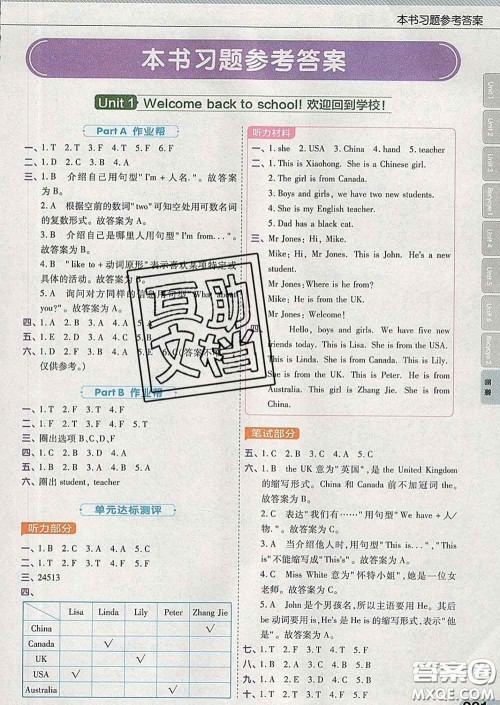 本书习题参考答案
本书习题参考答案
Unit 1 Welcome back to school! 欢迎回到学校!
Part A 作业帮
一、1. T 2. F 3. F 4. T 5. F
三、1. B 介绍自己用句型"I'm + 人名."。故答案为 B。
2. A 根据空前的数词"two"可知空处用可数名词
的复数形式。故答案为 A。
3. B 介绍自己是哪里人用句型"I'm from...."。故
答案为 B。
4. B "like to + 动词原形"表示喜欢某项特定或
具体的活动。故答案为 B。
5. A 询问对方同样的信息用句型"What about
you?"。故答案为 A。
四、1.
五、1. B
仅供参考。)
Part B 作业帮
一、1. T 2. F 3. T 4. F
三、圈出选项 B,C,D,F
五、1. T 2. F 3. F 4. F
六、圈出 student, teacher
单元达标测评
听力部分
一、1. B 2. B 3. A 4. A 5. C
二、1. B 2. C 3. A 4. B 5. A
三、24513
四、
Lisa Linda Lily Peter Zhang Jie
China √
Canada √
UK √
USA √
Australia √
听力材料
一、1. she 2. USA 3. China 4. hand 5. teacher
二、1. This is Xiaohong. She is a Chinese girl.
2. The girl is from Canada.
3. Boys and girls, we have two new students.
4. She is my English teacher.
5. Dad has a black cat.
三、Mr Jones: Hi, Mike.
Mike: Hi, Mr Jones. This is John. He's a new
student.
Mr Jones: Where is he from?
Mike: He is from the UK.
Mr Jones: Welcome!
四、Hello, boys and girls. We have five new
friends today. This is Lisa. She is from the USA.
This is Linda. She is from Canada. This is Lily.
She is from the UK. This is Peter. He is from
Australia. This girl is Zhang Jie. She is from
China.
笔试部分
五、1. B 2. C 3. A 4. B 5. C
六、1. B the UK 意为"英国",是 the United Kingdom
的缩写形式。China 和 Canada 前不加冠词 the。
故答案为 B。
2. C 表达"我们有……"用句型"We have...."。
故答案为 C。
3. A 当介绍他人时,用句型"This is...."。This
is 不能缩写成"This's"。故答案为 A。
4. C Miss White 意为"怀特小姐",她是一位女
老师。故答案为 C。
5. A John 是一个男孩的名字,作主语时,其后
be 动词要用 is,He's 是 He is 的缩写形式,表示"他
是"。故答案为 A。
七、1. B 2. F 3. A 4. C 5. F
八、1. B 2. F 3. A 4. C 5. E
九、1. B 2. C 3. A 4. E 5. D
十、1. T 2. F 3. F 4. F 5. T
Unit 1
Unit 2
Unit 3
Recycle 1
Unit 4
Unit 5
Unit 6
Recycle 2
互助
文档
答案圈
MXQE.COM